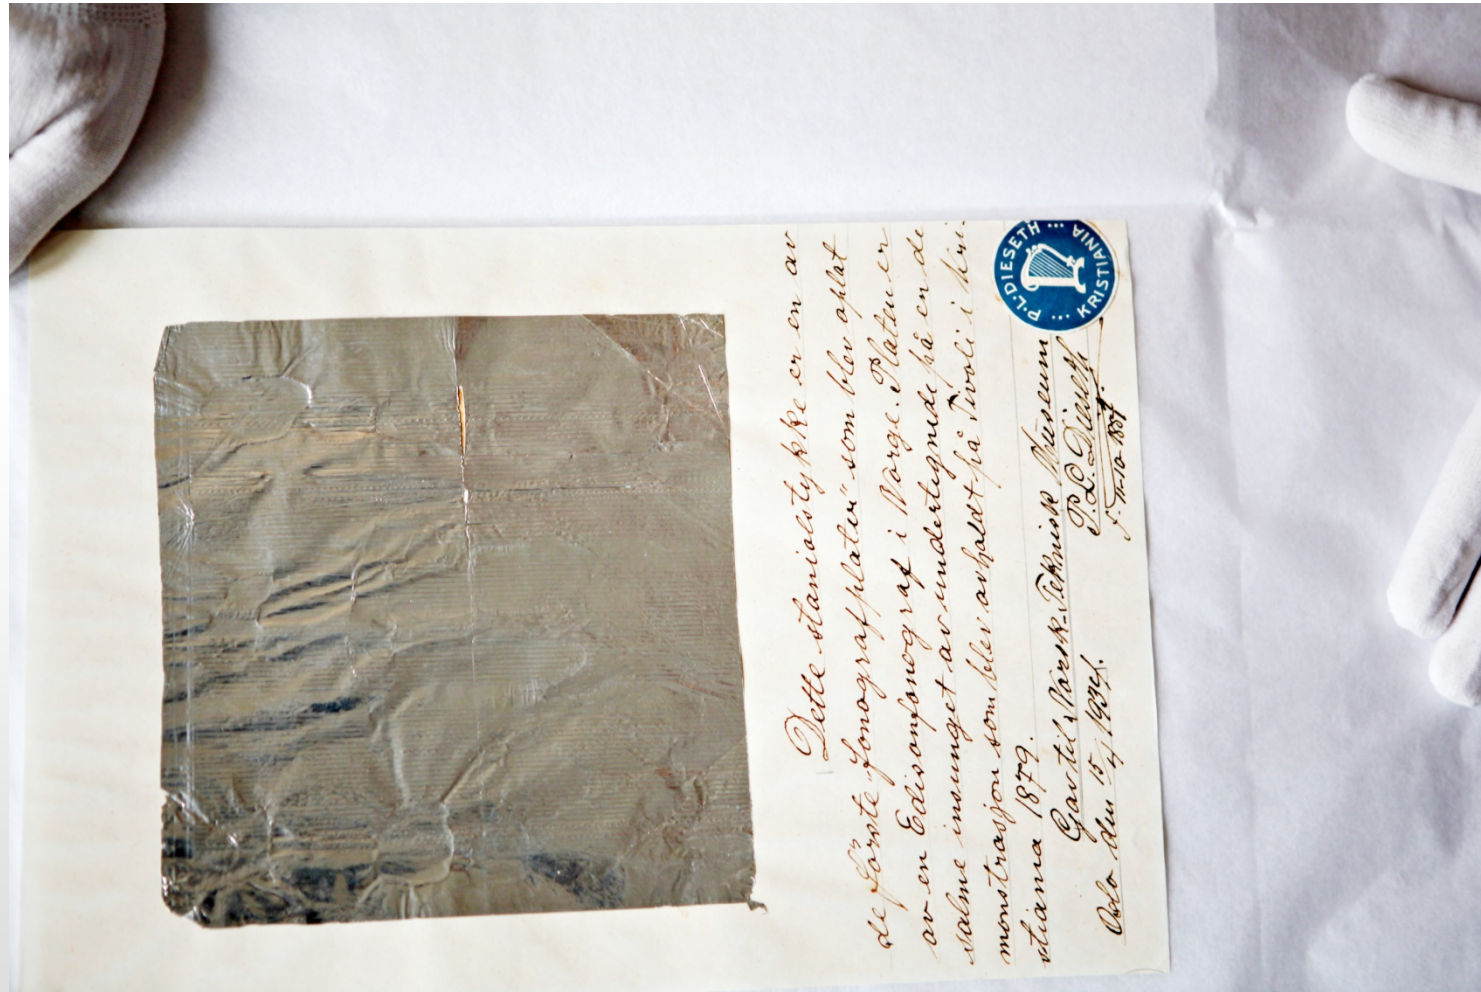 Dette staniolstykke er en av
de förste "fonografplater" som blev oplat
av en Edisonfonograf i Norge. Platen er
salme insunget av undertegnede på en de
monstrasjon som blev avholdt på Tivoli i Kri-
stianna 1879.
Gav til Norsk-Teknisk Museum
Oslo den 15/4 1934.
P. L. Dieseth
P.L. DIESETH ... KRISTIANIA ...